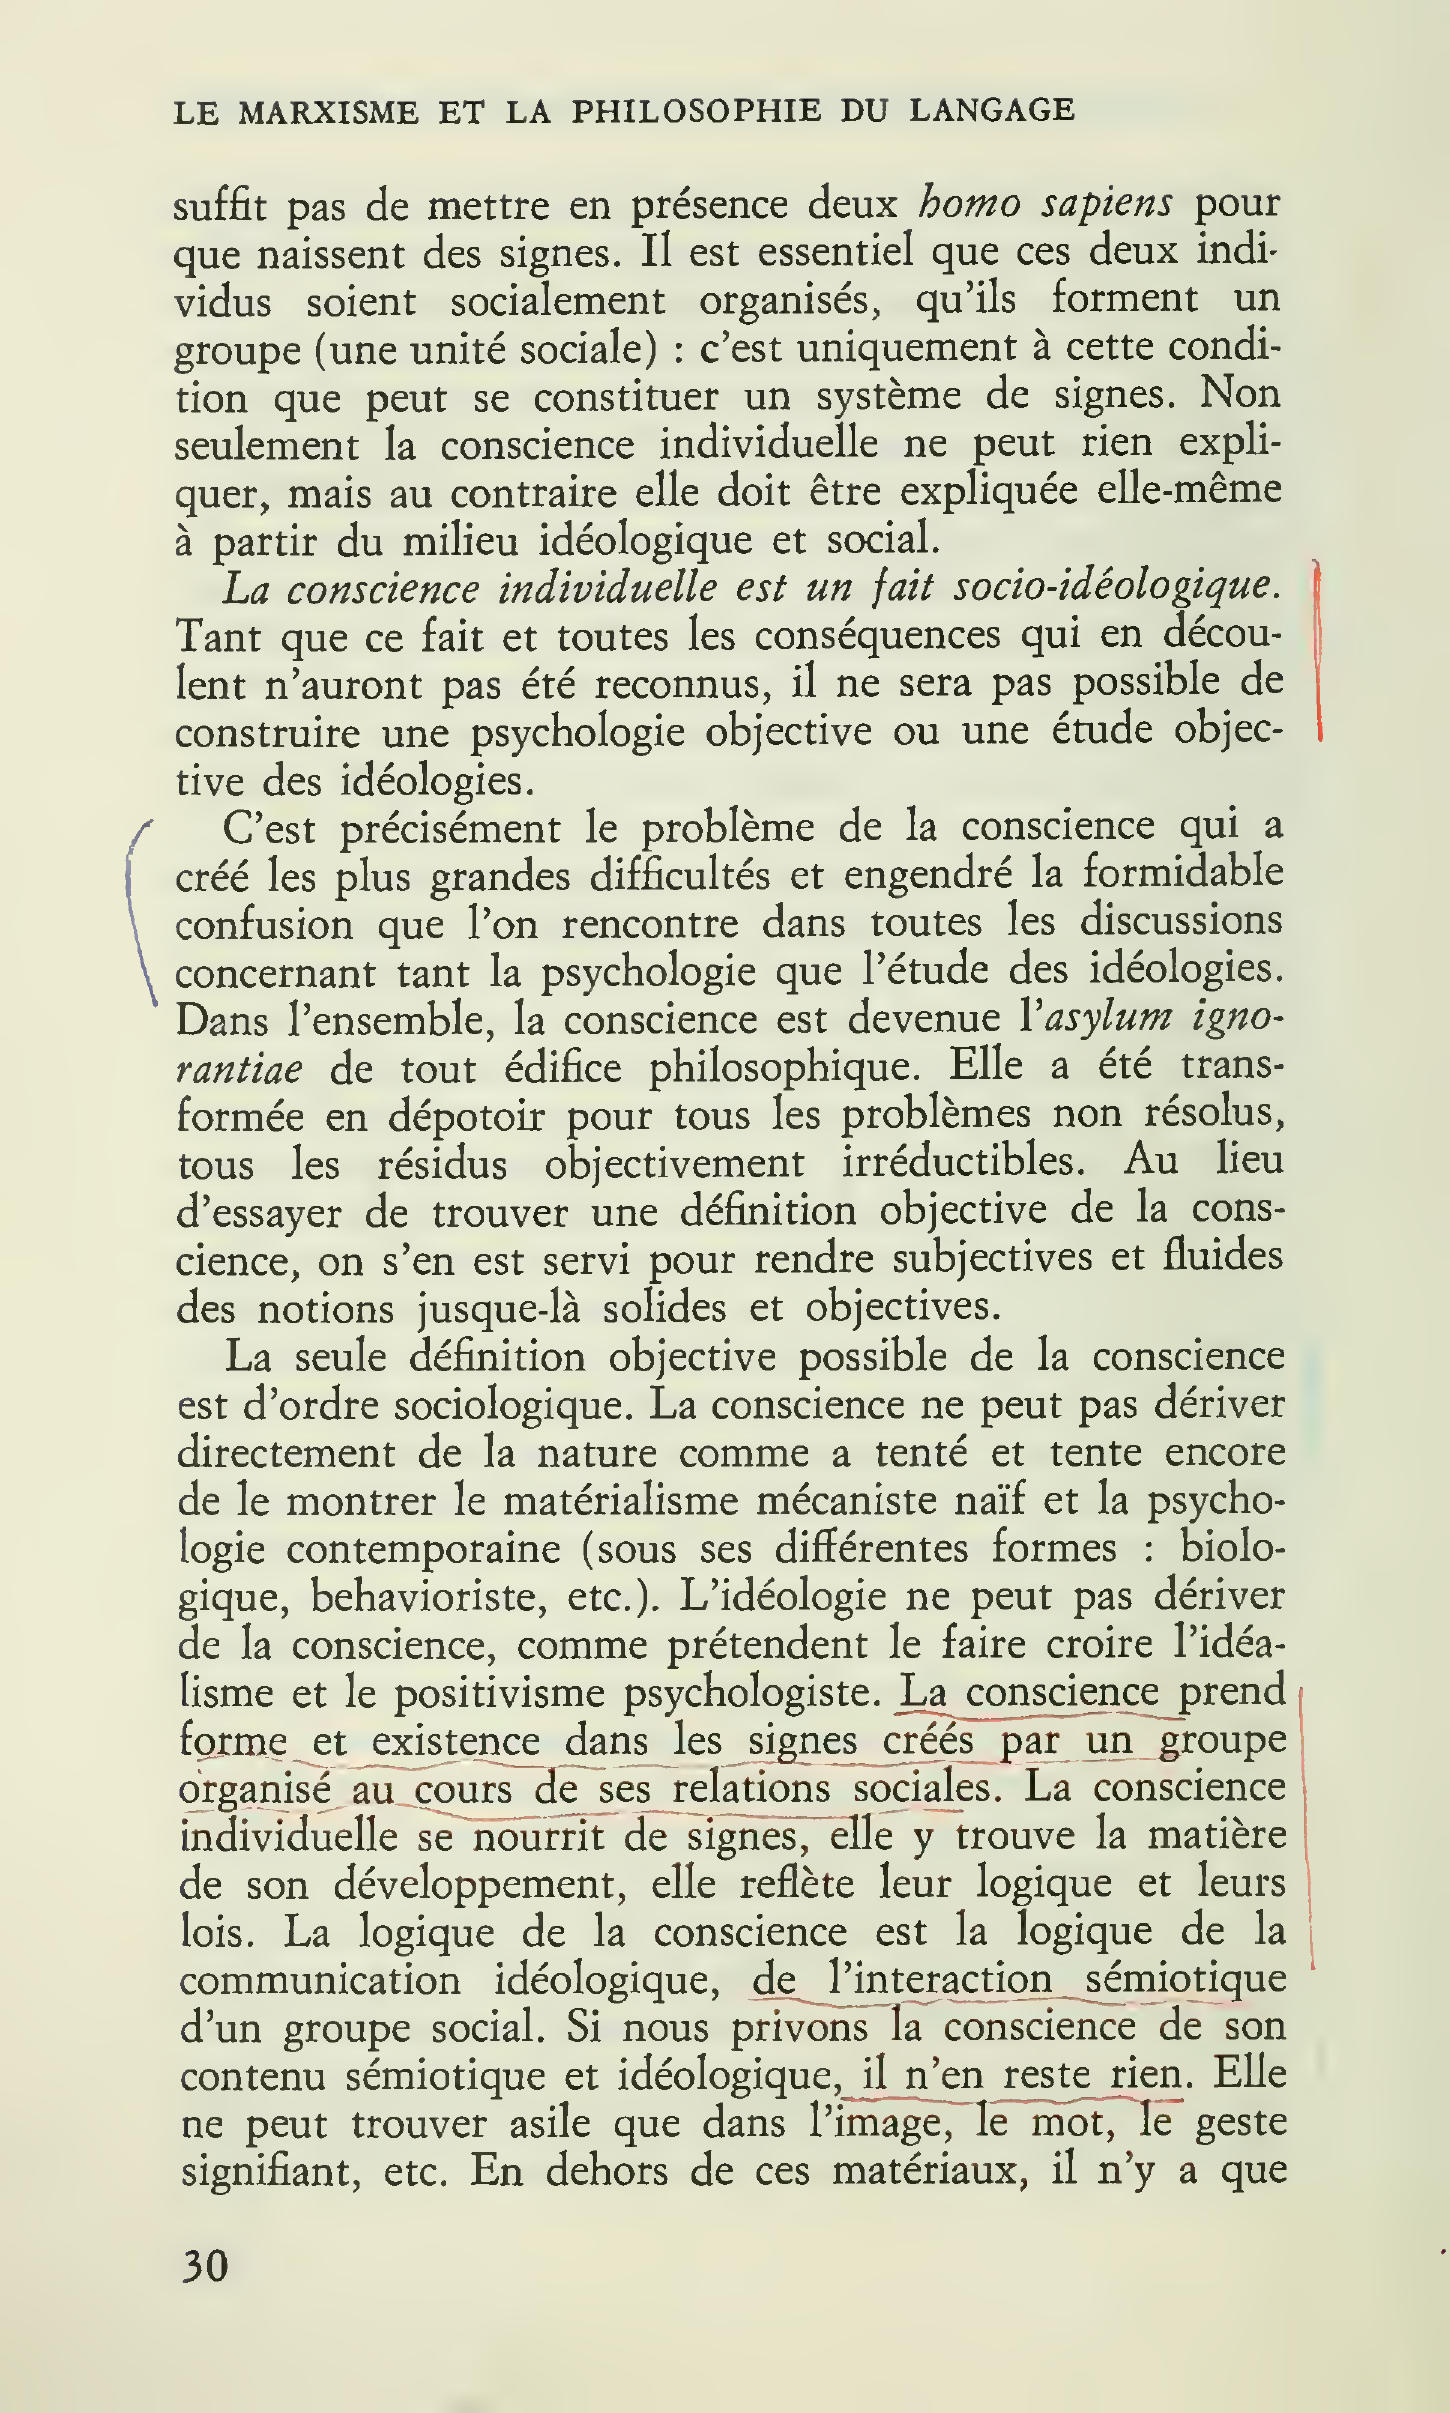 LE MARXISME ET LA PHILOSOPHIE DU LANGAGE
suffit pas de mettre en présence deux homo sapiens pour
que naissent des signes. Il est essentiel que ces deux indi-
vidus soient socialement organisés, qu'ils forment un
groupe (une unité sociale) : c'est uniquement à cette condi-
tion que peut se constituer un système de signes. Non
seulement la conscience individuelle ne peut rien expli-
quer, mais au contraire elle doit être expliquée elle-même
à partir du milieu idéologique et social.
La conscience individuelle est un fait socio-idéologique.
Tant que ce fait et toutes les conséquences qui en décou-
lent n'auront pas été reconnus, il ne sera pas possible de
construire une psychologie objective ou une étude objec-
tive des idéologies.
C'est précisément le problème de la conscience qui a
créé les plus grandes difficultés et engendré la formidable
confusion que l'on rencontre dans toutes les discussions
concernant tant la psychologie que l'étude des idéologies.
Dans l'ensemble, la conscience est devenue l'asylum igno-
rantiae de tout édifice philosophique. Elle a été trans-
formée en dépotoir pour tous les problèmes non résolus,
tous les résidus objectivement irréductibles. Au lieu
d'essayer de trouver une définition objective de la cons-
cience, on s'en est servi pour rendre subjectives et fluides
des notions jusque-là solides et objectives.
La seule définition objective possible de la conscience
est d'ordre sociologique. La conscience ne peut pas dériver
directement de la nature comme a tenté et tente encore
de le montrer le matérialisme mécaniste naïf et la psycho-
logie contemporaine (sous ses différentes formes : biolo-
gique, behavioriste, etc.). L'idéologie ne peut pas dériver
de la conscience, comme prétendent le faire croire l'idéa-
lisme et le positivisme psychologiste. La conscience prend
forme et existence dans les signes créés par un groupe
organisé au cours de ses relations sociales. La conscience
individuelle se nourrit de signes, elle y trouve la matière
de son développement, elle reflète leur logique et leurs
lois. La logique de la conscience est la logique de la
communication idéologique, de l'interaction sémiotique
d'un groupe social. Si nous privons la conscience de son
contenu sémiotique et idéologique, il n'en reste rien. Elle
ne peut trouver asile que dans l'image, le mot, le geste
signifiant, etc. En dehors de ces matériaux, il n'y a que
30